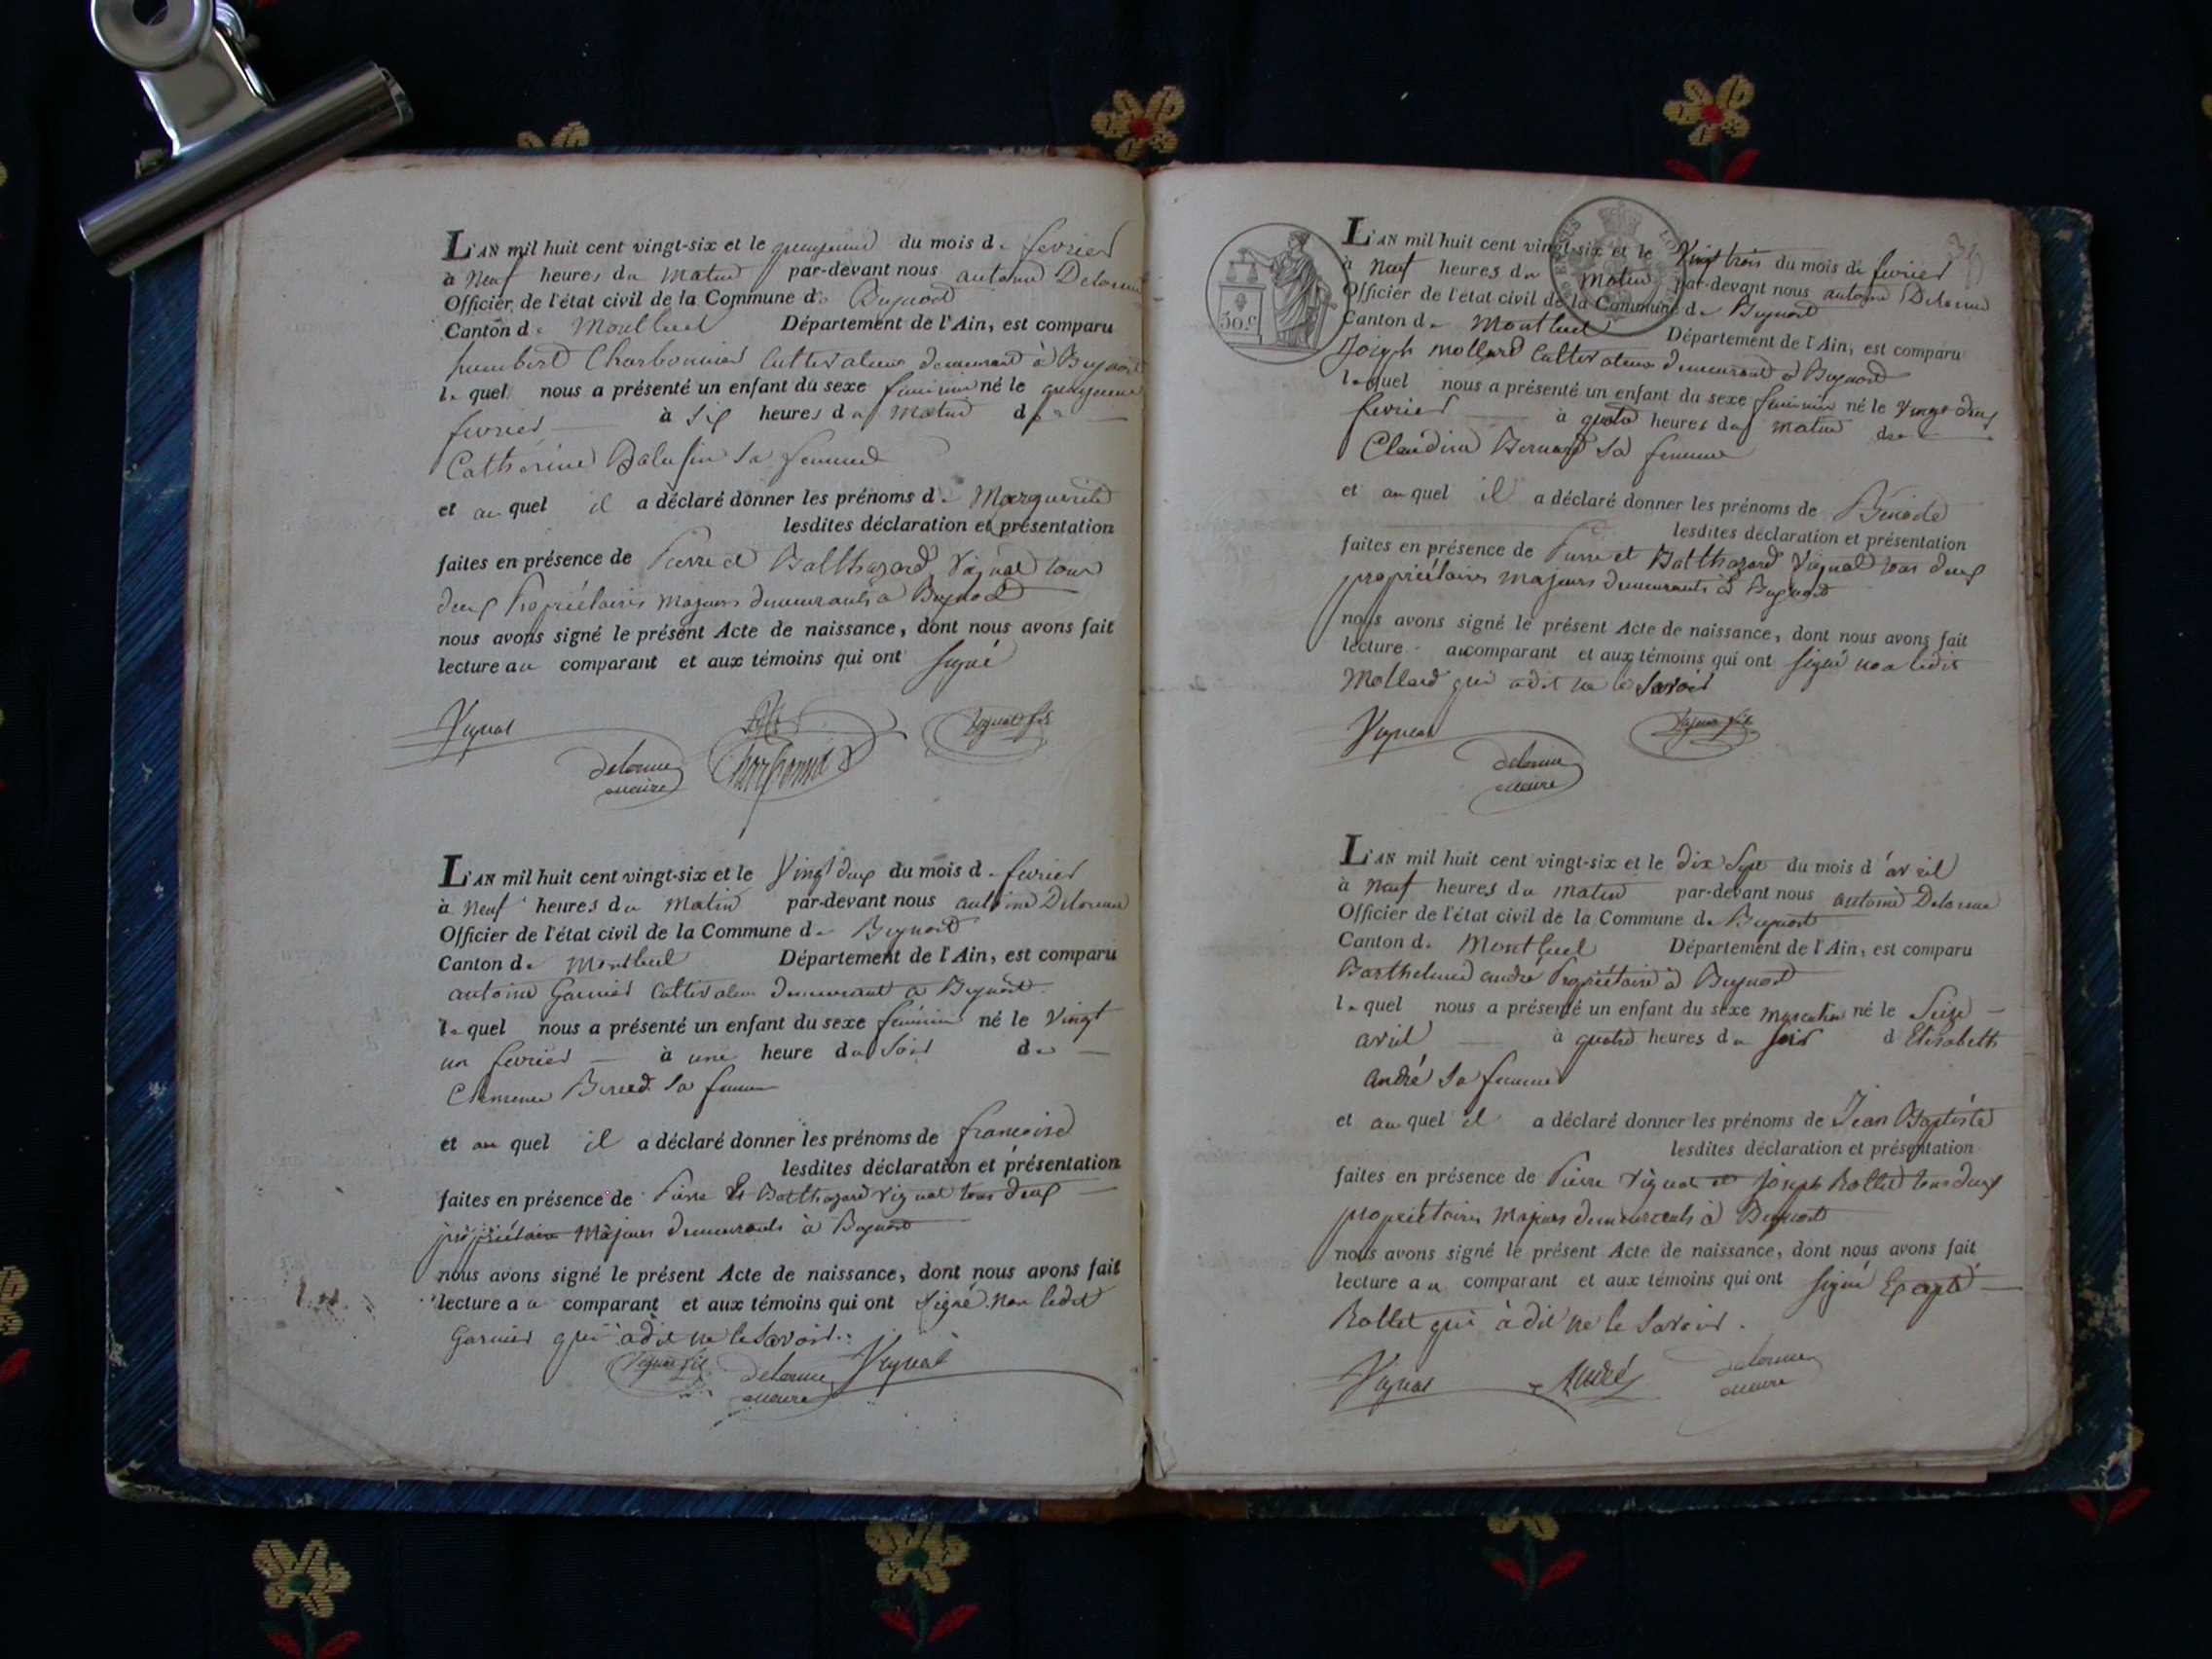 L'AN mil huit cent vingt-six et le quinzieme du mois de fevrier
à Neuf heures du Matin par-devant nous antoine Delorme
Officier de l'état civil de la Commune de
Canton de Montluel Département de l'Ain, est comparu
humbert Charbonnier Cultivateur demeurant à
lequel nous a présenté un enfant du sexe feminin né le quinzieme
fevrier à six heures du matin de
Catherine sa femme
et auquel il a déclaré donner les prénoms de Marguerite
lesdites déclaration et présentation
faites en présence de Pierre et Balthazard Vignal tous
deux Propriétaires Majeurs demeurants à
nous avons signé le présent Acte de naissance, dont nous avons fait
lecture au comparant et aux témoins qui ont signé
Vignal Vignal fils
delorme Charbonnié
maire
L'AN mil huit cent vingt-six et le Vingt deux du mois de fevrier
à Neuf heures du Matin par-devant nous antoine Delorme
Officier de l'état civil de la Commune de
Canton de Montluel Département de l'Ain, est comparu
antoine Garnier Cultivateur demeurant à
lequel nous a présenté un enfant du sexe feminin né le Vingt
un fevrier à une heure du Soir de
sa femme
et auquel il a déclaré donner les prénoms de francoise
lesdites déclaration et présentation
faites en présence de Pierre Et Balthazard Vignal tous deux
propriétaire Majeurs demeurants à
nous avons signé le présent Acte de naissance, dont nous avons fait
lecture au comparant et aux témoins qui ont signé non ledit
Garnier qui à dit ne le savoir.
Vignal fils delorme Vignal
maire
L'AN mil huit cent vingt-six et le Vingt trois du mois de fevrier
à Neuf heures du Matin par-devant nous antoine Delorme
Officier de l'état civil de la Commune de
50.c
Canton de Montluel Département de l'Ain, est comparu
Joseph Mollard Cultivateur demeurant à
lequel nous a présenté un enfant du sexe feminin né le Vingt deux
fevrier à quatre heures du matin de
Claudine Bernard sa femme
et auquel il a déclaré donner les prénoms de
lesdites déclaration et présentation
faites en présence de Pierre et Balthazard Vignal tous deux
propriétaires majeurs demeurants à
nous avons signé le présent Acte de naissance, dont nous avons fait
lecture au comparant et aux témoins qui ont signé non ledit
Mollard qui a dit ne le savoir
Vignal Vignal fils
delorme
maire
L'AN mil huit cent vingt-six et le dix Sept du mois d'avril
à Neuf heures du matin par-devant nous antoine Delorme
Officier de l'état civil de la Commune de
Canton de Montluel Département de l'Ain, est comparu
Barthelemi andré Propriétaire à
lequel nous a présenté un enfant du sexe masculin né le Seize
avril à quatre heures du soir d Elisabeth
andré sa femme
et auquel il a déclaré donner les prénoms de Jean Baptiste
lesdites déclaration et présentation
faites en présence de Pierre Vignal et joseph Rollet tous deux
propriétaires Majeurs demeurants à
nous avons signé le présent Acte de naissance, dont nous avons fait
lecture au comparant et aux témoins qui ont signé Excepté
Rollet qui à dit ne le savoir.
Vignal André delorme
maire